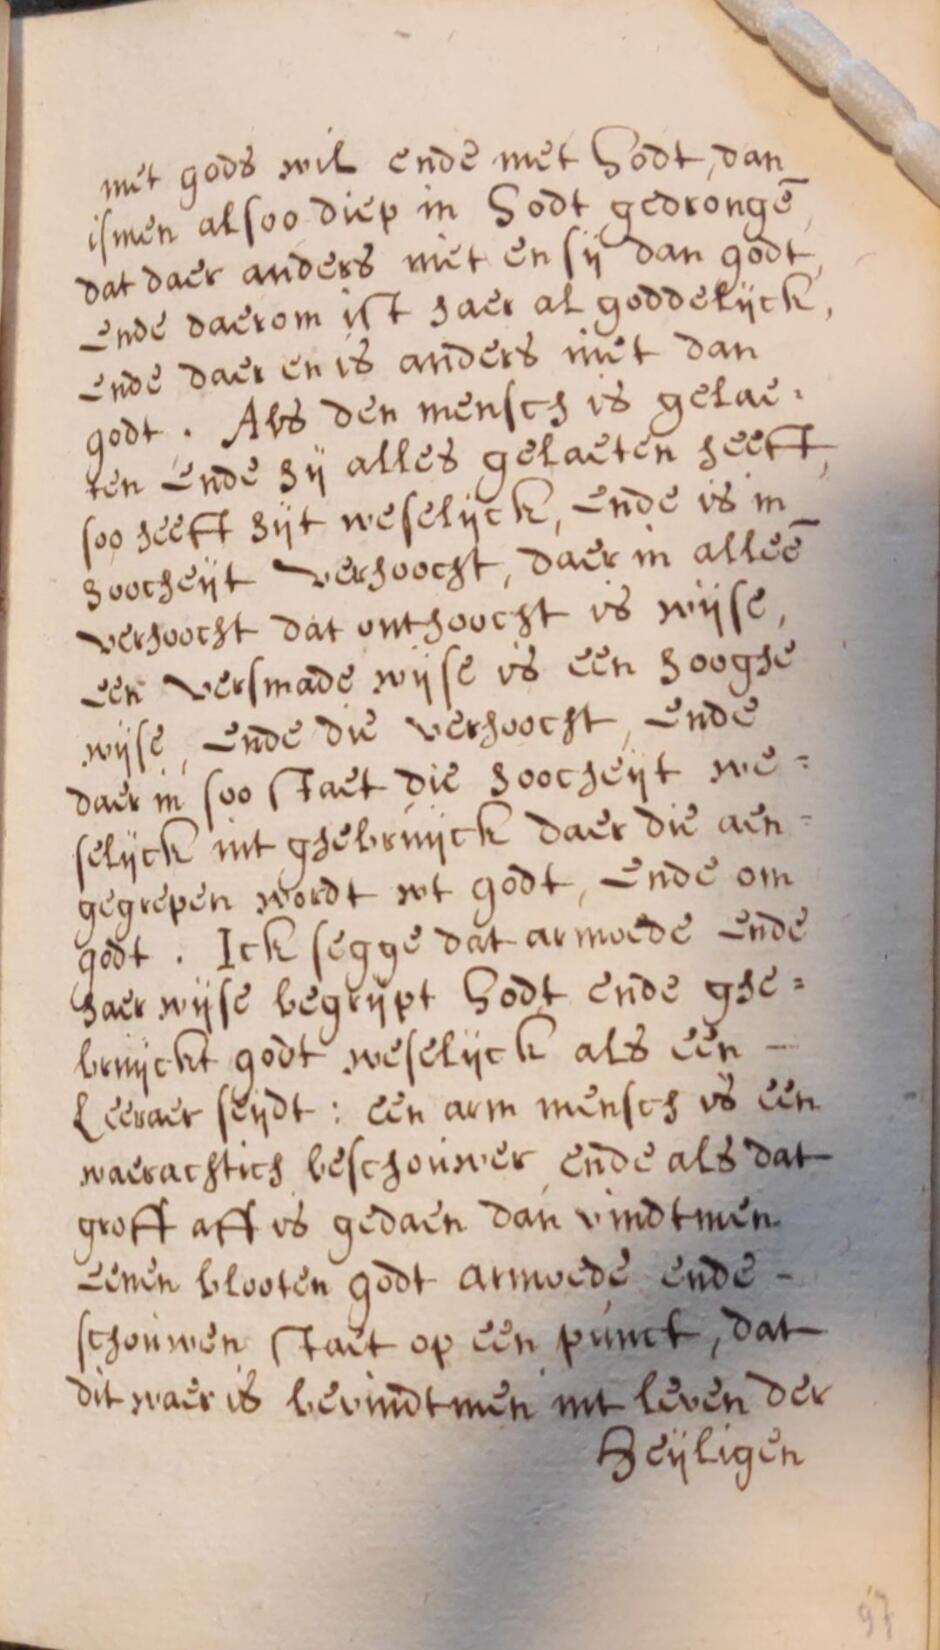 met gods wil ende met Godt, dan
ismen alsoo diep in Godt gedrongē,
dat daer anders niet en sij dan godt,
ende daerom ist haer al goddelijck,
ende daer en is anders niet dan
godt. Als den mensch is gelae-
ten ende hij alles gelaeten heeft,
soo heeft hijt weselijck, ende is in
hoocheijt verhoocht, daer in alleē
verhoocht dat onthoocht is wijse,
een versmade wijse is een hooghe
wijse, ende die verhoocht, ende
daer in soo staet die hoocheijt we=
selijck int ghebruijck daer die aen=
gegrepen wordt wt godt, ende om
godt. Ick segge dat armoede ende
haer wijse begrijpt Godt ende ghe=
bruijckt godt weselijck als een –
Leeraer seijdt: een arm mensch is een
waerachtich beschouwer ende als dat
groff aff is gedaen dan vindtmen
eenen blooten godt armoede ende –
schouwen staet op een punct, dat
dit waer is bevindtmen int leven der
Heijligen
97